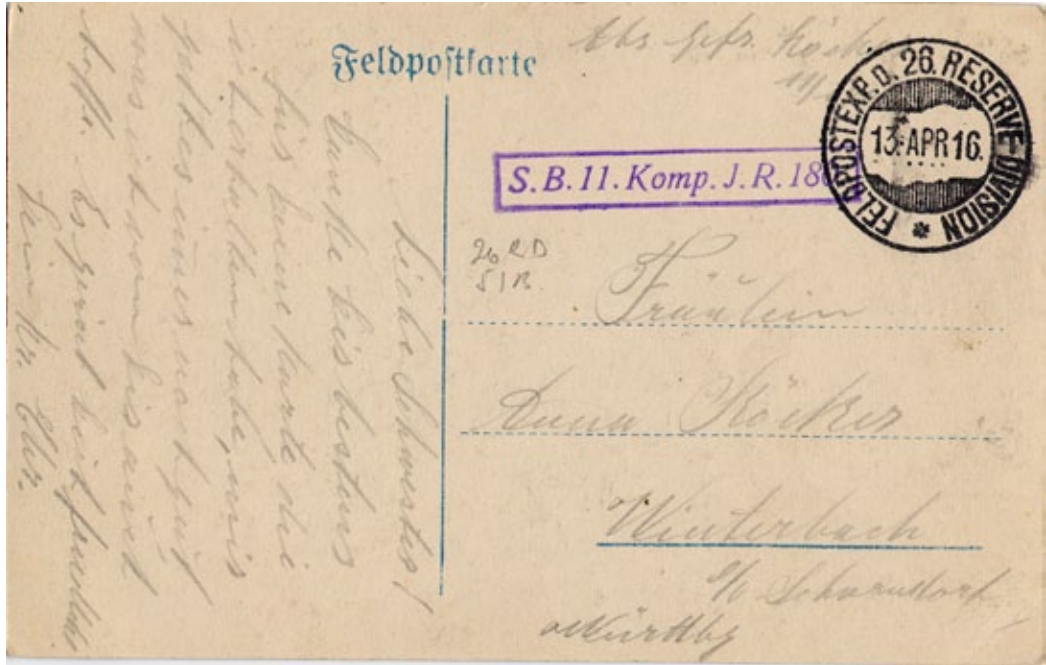 Feldpostkarte
Abs. Gefr. Röcker
FELDPOSTEXP. D. 26. RESERVE-DIVISION *
13. APR 16.
S. B. 11. Komp. J. R. 180
26 RD
51 R.
Fräulein
Anna Röcker
Winterbach
Schorndorf
Württbg
Liebe Schwester!
Danke dir bestens
für deine Karte die
ich erhalten habe, mir
geht es immer noch gut
was ich von dir auch
hoffe. Es grüßt dich
Dein Br.